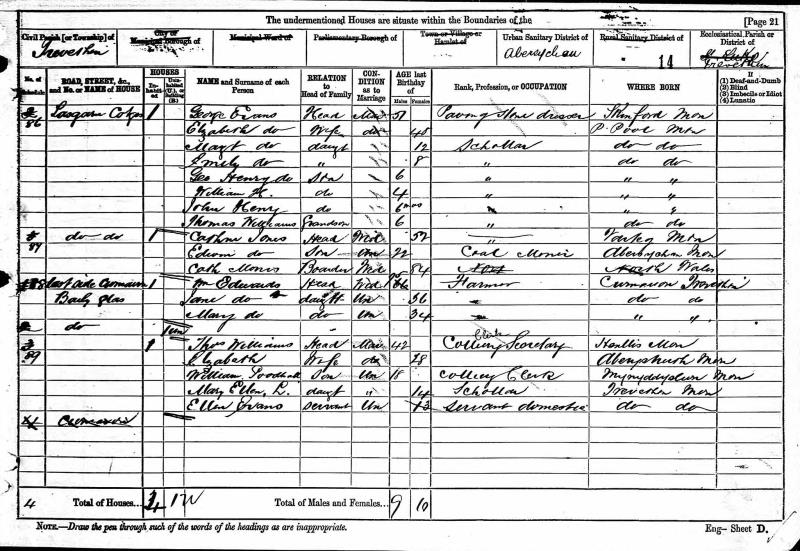 The undermentioned Houses are situate within the Boundaries of the
[Page 21
Civil Parish [or Township] of
City or Municipal Borough of
Municipal Ward of
Parliamentary Borough of
Town or Village or Hamlet of
Urban Sanitary District of
Rural Sanitary District of
Ecclesiastical Parish or District of
Trevethin
Abersychan
14
Trevethin
No. of Schedule
ROAD, STREET, &c., and No. or NAME of HOUSE
HOUSES
Inhabited
Uninhabited (U.), or Building (B.)
NAME and Surname of each Person
RELATION to Head of Family
CONDITION as to Marriage
AGE last Birthday of
Males
Females
Rank, Profession, or OCCUPATION
WHERE BORN
If
(1) Deaf-and-Dumb
(2) Blind
(3) Imbecile or Idiot
(4) Lunatic
86 1 George Evans Head Mar 51 Paving Stone dresser Mon
Elizabeth do Wife do 45 P. Pool Mon
Mayt do daugt 12 Scholar do do
Emily do " 8 " do do
Geo Henry do Son 6 " " "
William H. do 4 " " "
John Henry do 6 mos " " "
Thomas Williams Grandson 6 " do do
87 do do 1 Jones Head Wid 52 Mon
Edwin do Son Un 22 Coal Miner Abersychan Mon
Cath Morris Boarder Wid 84 North Wales
88 1 Wm Edwards Head Wid Farmer Cwmavon Trevethin
Jane do daught Un 36 " do do
Mary do do Un 34 " " "
do 1 un
89 1 Thos Williams Head Mar 42 Colliery Clerk Secretary Mon
Elizabeth Wife do 38 Mon
William Son Un 18 Colliery Clerk Mynyddyslwn Mon
Mary Ellen L. daugt " 14 Scholar Trevethin Mon
Ellen Evans Servant Un 13 Servant domestic do do
Cwmavon
4 Total of Houses... 4 1 U Total of Males and Females... 9 10
NOTE.—Draw the pen through such of the words of the headings as are inappropriate.
Eng— Sheet D.